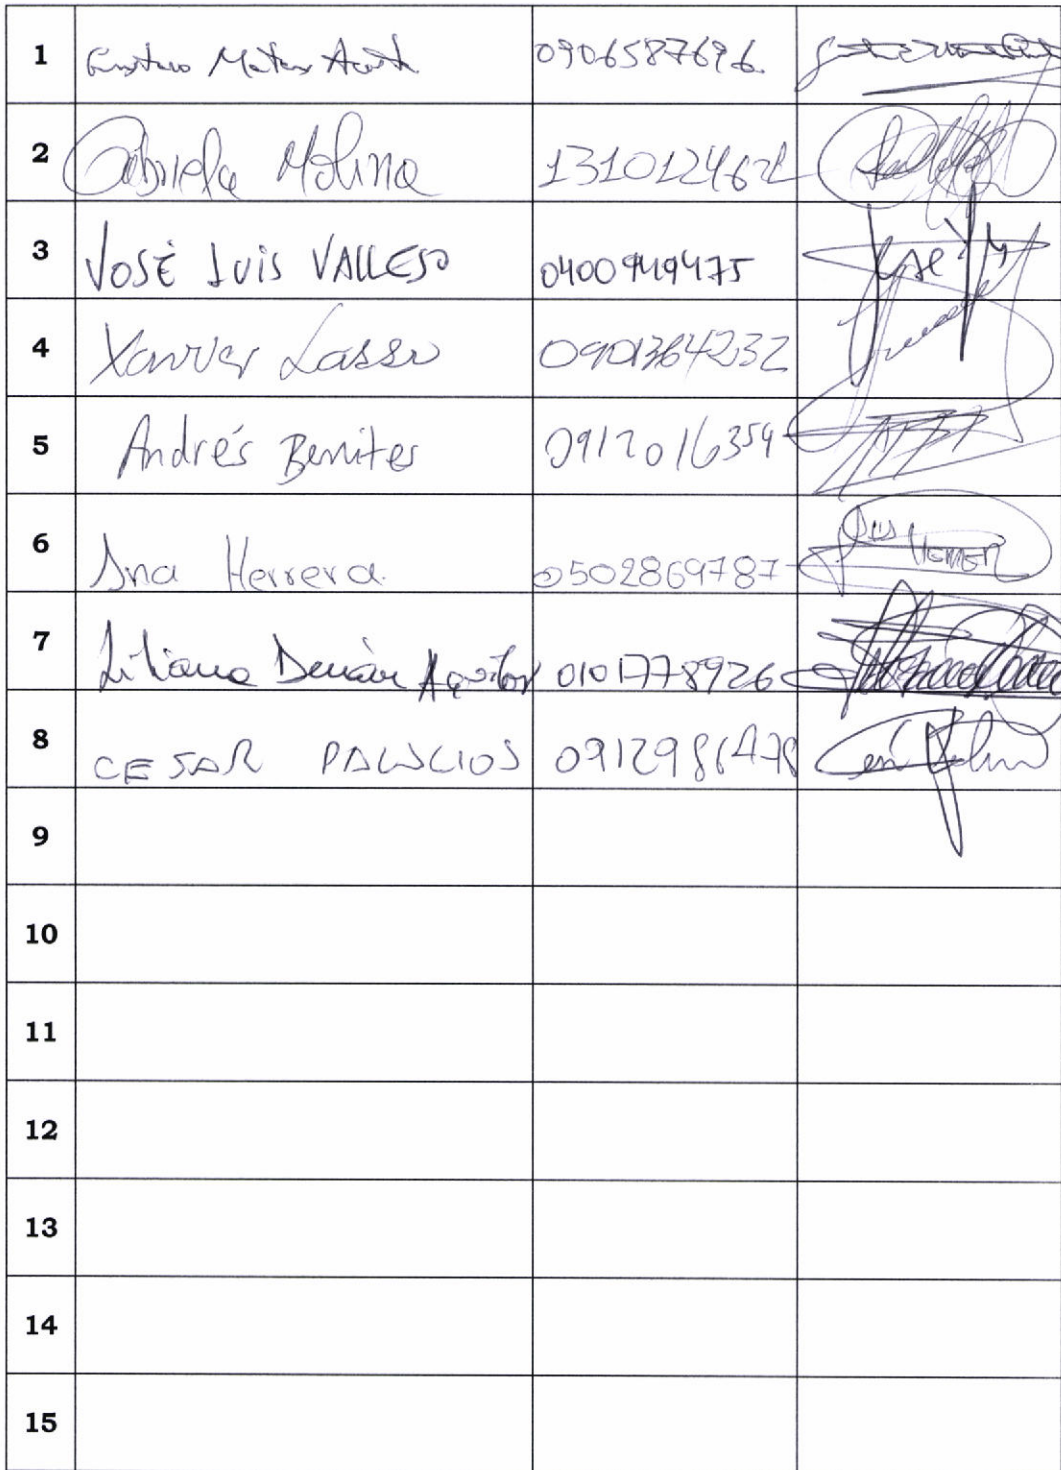 1 Gustavo Mateus Acosta 0906587696
2 Gabriela Molina 131012462
3 JOSÉ LUIS VALLEJO 0400949475
4 Xavier Lasso 0901364232
5 Andrés Benites 0912016354
6 Ana Herrera 0502869787
7 Liliana Durán Aguilar 0101778926
8 CESAR PALACIOS 0912986478
9
10
11
12
13
14
15